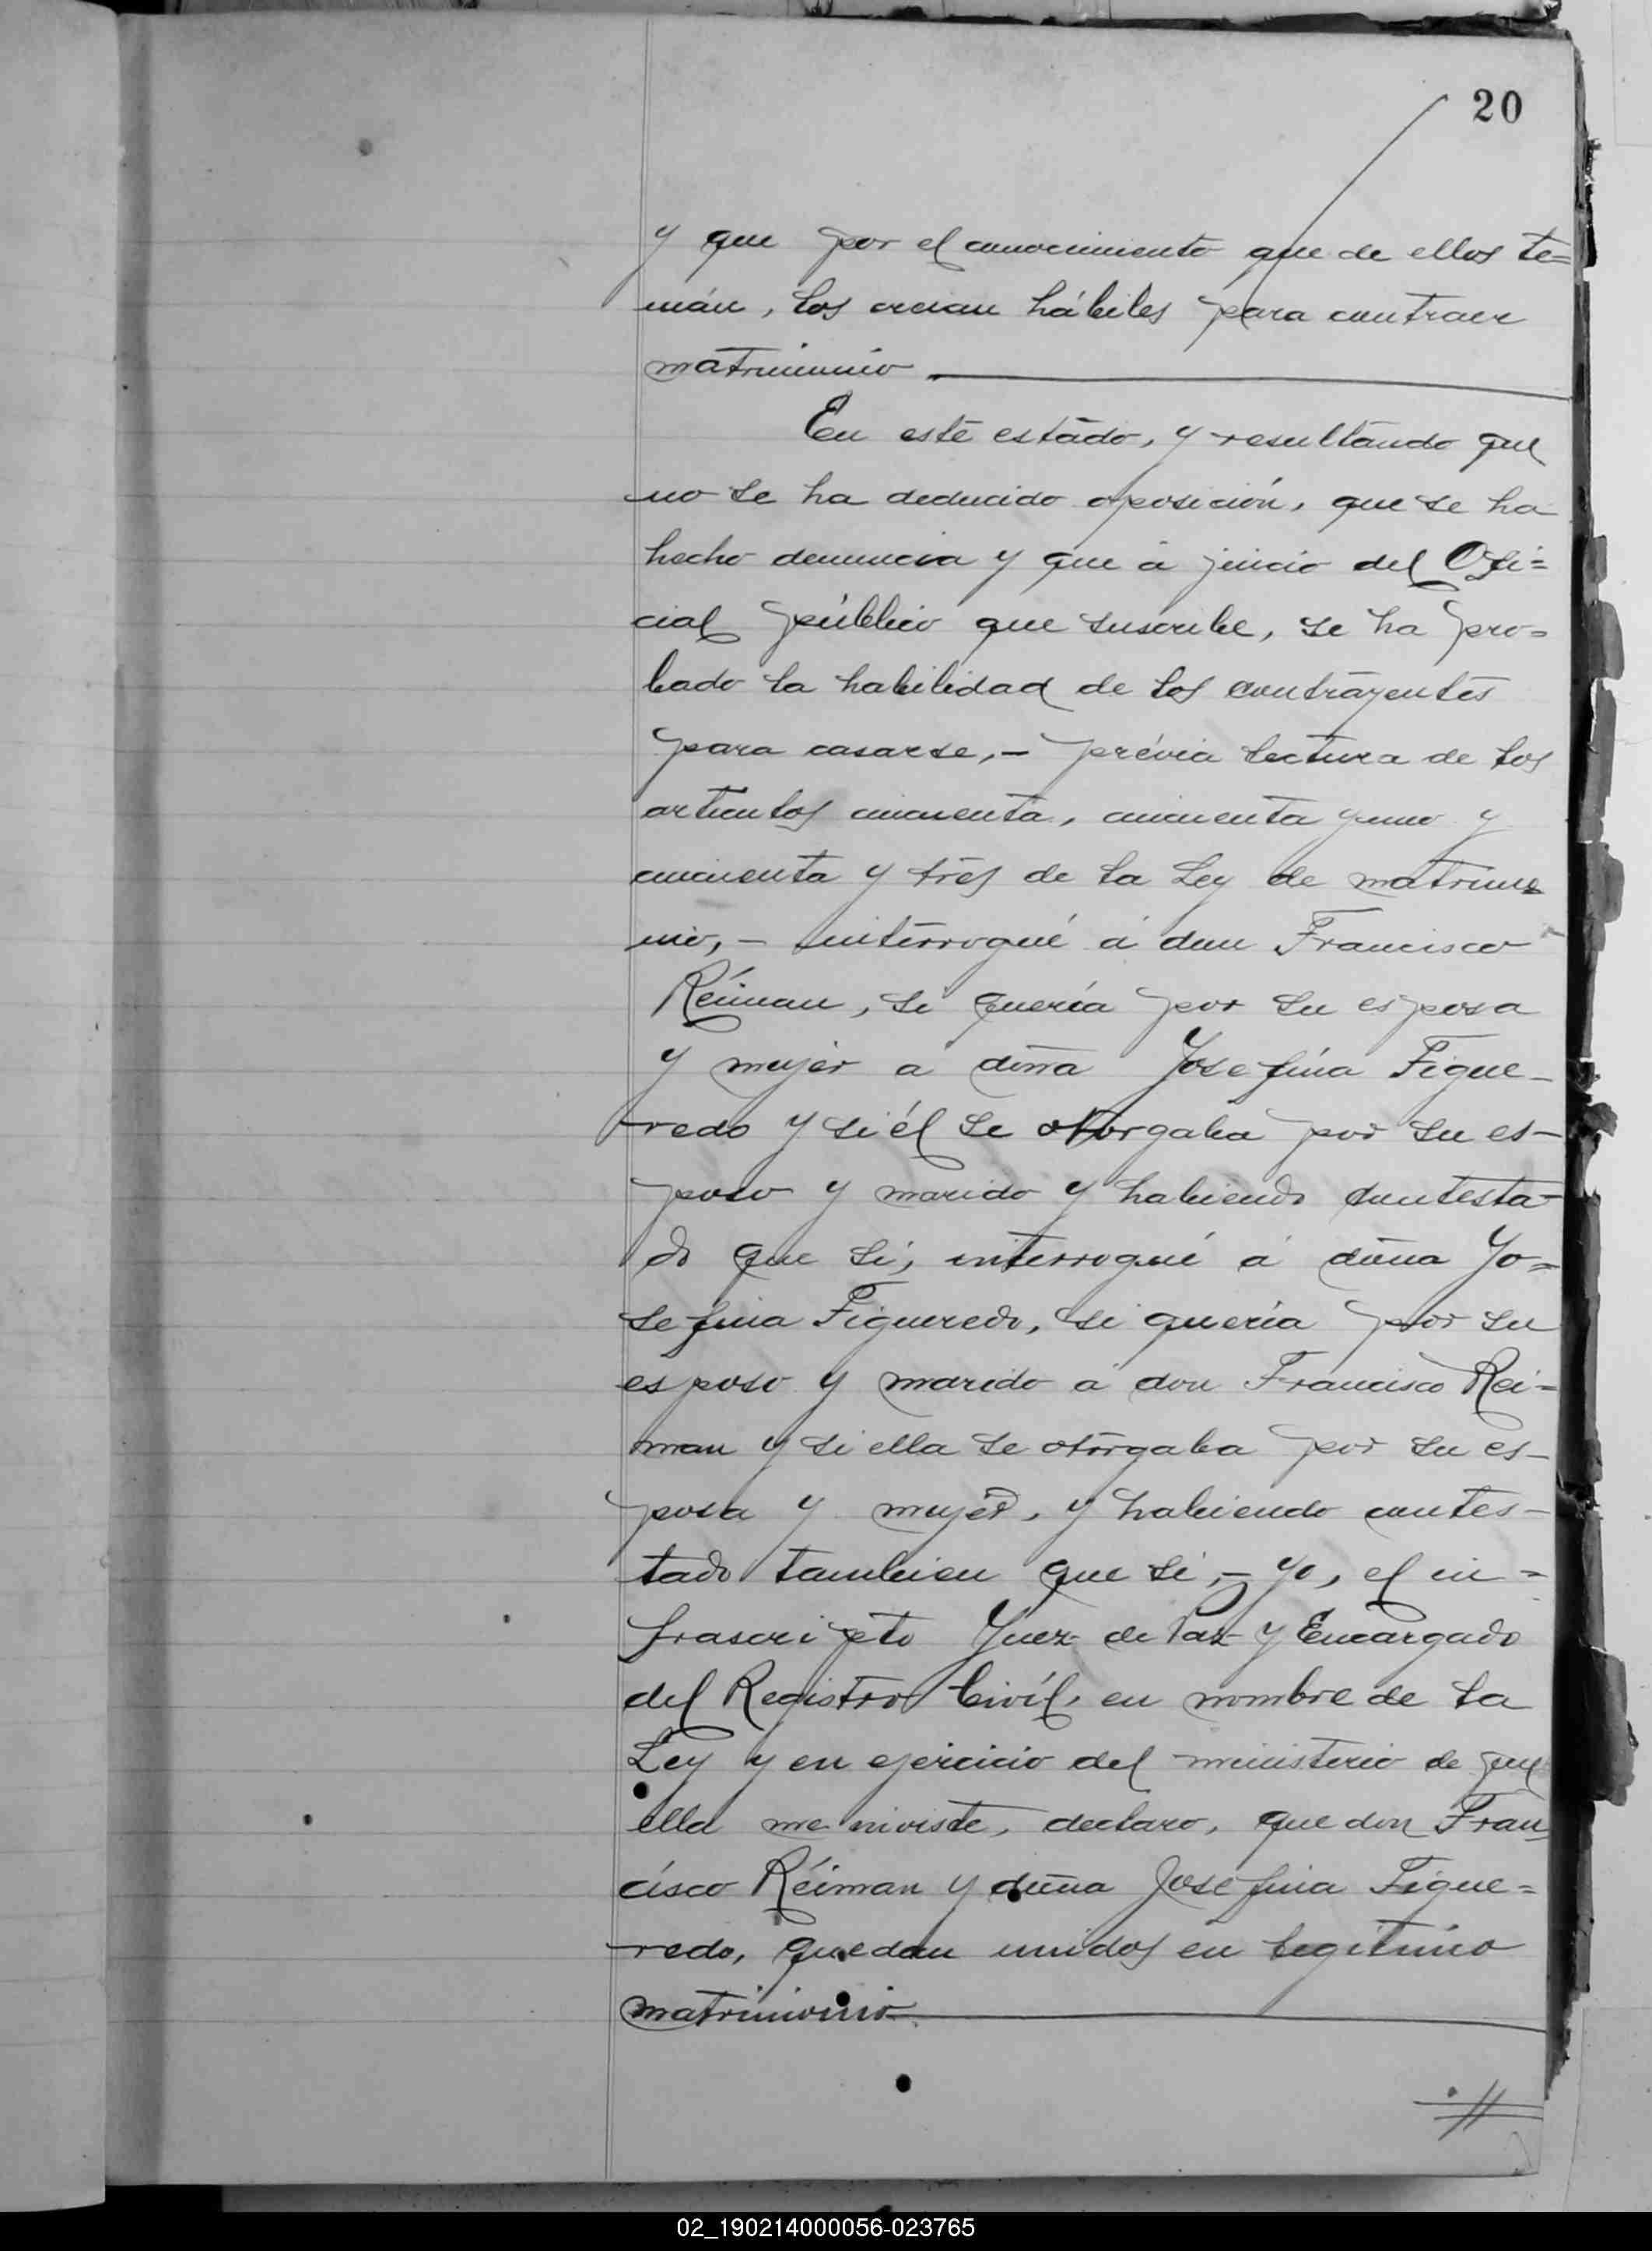 20
y que por el conocimiento que de ellos te=
nián, los creian hábiles para contraer
matrimonio
En este estado, y resultando que
no se ha deducido oposición, que se ha
hecho denuncia y que á juicio del Ofi=
cial público que suscribe, se ha pro=
bado la habilidad de los contrayentes
para casarse,- prévia lectura de los
articulos cincuenta, cincuenta y uno y
cincuenta y tres de la Ley de matrimo
nio,- interrogué á don Francisco
Réiman, si quería por su esposa
y mujer a doña Josefina Figue-
redo y si él se otorgaba por su es-
poso y marido y habiendo contesta-
do que si, interrogué á doña Jo=
sefina Figueredo, si quería por su
esposo y marido á don Francisco Rei=
man y si ella se otorgaba por su es-
posa y mujer, y habiendo contes-
tado tambien que si,- yo, el in=
frascripto Juez de Paz y Encargado
del Registro Civíl, en nombre de la
Ley y en ejercicio del ministerio de que
ella me inviste, declaro, que don Fran
císco Réiman y doña Josefina Figue=
redo, quedan unidos en legitimo
matrimonio
02_190214000056-023765